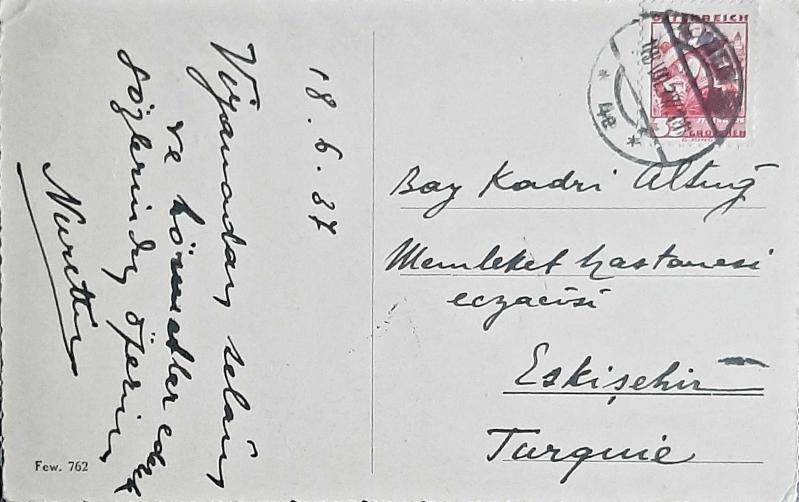 18.6.37
Viyanadan selâm
ve hörmetler eder
gözlerinden öperim
Nurettin
Few. 762
ÖSTERREICH
GROSCHEN
* 4e *
Bay Kadri Altuğ
Memleket hastanesi
eczacısı
Eskişehir
Turquie